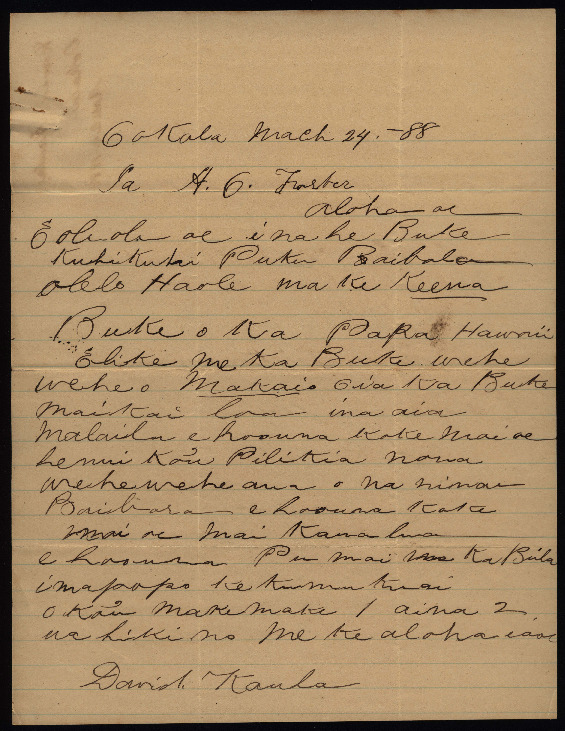 Ookala Mach 24.-88
Ia A. O. Forbes
Aloha oe
E oluolu oe ina he Buke
Kuhikuhi Puku Baibala
olelo Haole ma ke Keena
Buke o Ka Papa Hawaii
Elike me Ka Buke wehe
wehe o Makaio Oia Ka Buke
maikai loa ina aia
Malaila e hoouna koke mai oe
he nui kou Pilikia nona
wehewehe ana o na ninau
Baibala e hoouna koke
mai oe mai kanalua
e hoouna Pu mai Ka Bila
i maopopo ke kumukuai
o kou makemake 1 a ina 2
ua hiki no Me ke aloha ia oe
David. Kaula